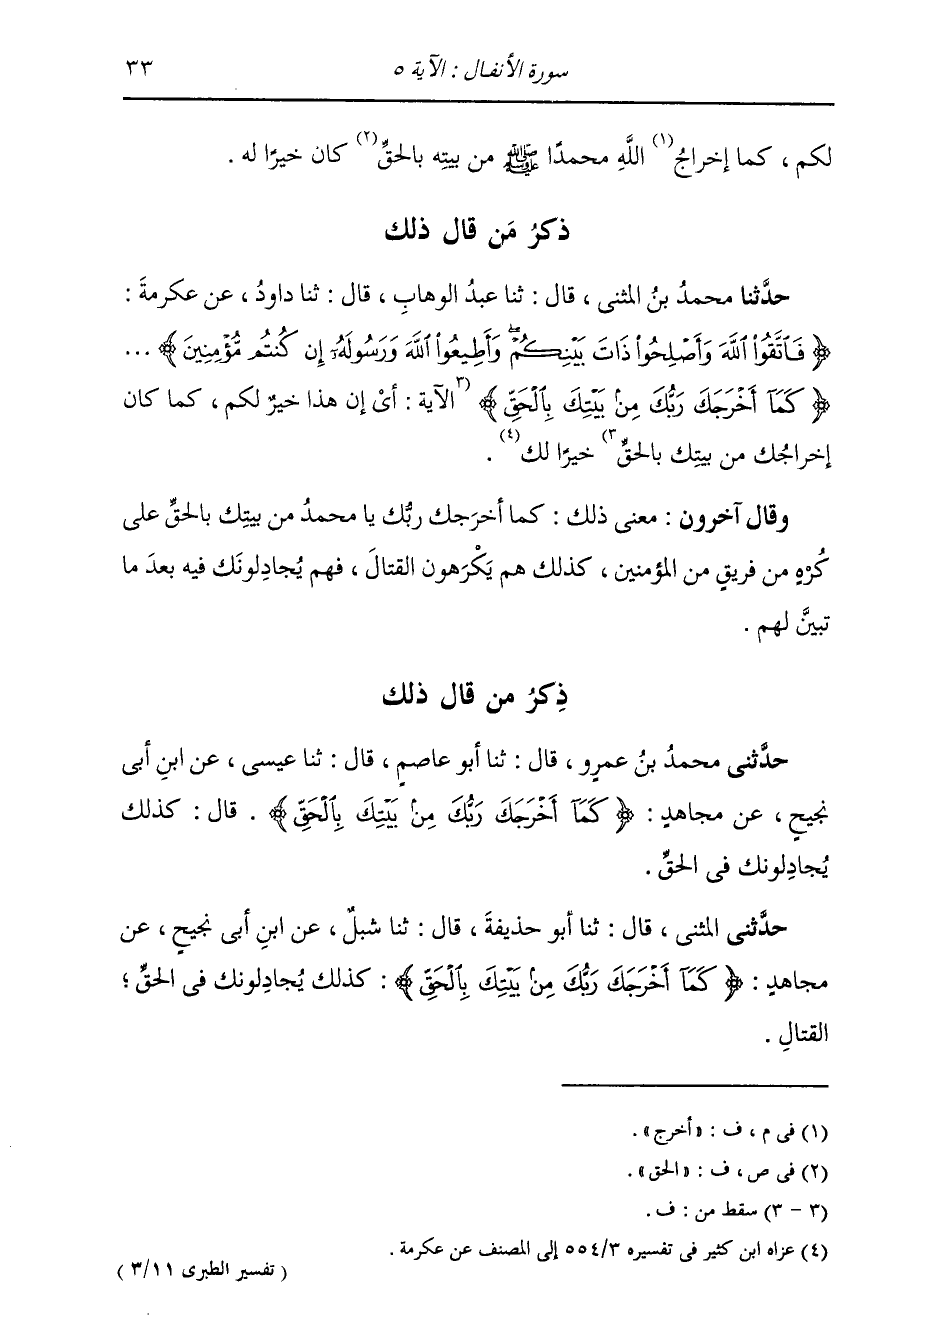 سورة الأنفال : الآية ٥ ٣٣
لكم ، كما إخراجُ(١) اللَّهِ محمدًا ﷺ من بيتِه بالحقِّ(٢) كان خيرًا له .
ذكرُ مَن قال ذلك
حدَّثنا محمدُ بنُ المثنى ، قال : ثنا عبدُ الوهابِ ، قال : ثنا داودُ ، عن عكرمةَ :
﴿ فَٱتَّقُوا۟ ٱللَّهَ وَأَصْلِحُوا۟ ذَاتَ بَيْنِكُمْ ۖ وَأَطِيعُوا۟ ٱللَّهَ وَرَسُولَهُۥٓ إِن كُنتُم مُّؤْمِنِينَ ﴾ ...
﴿ كَمَآ أَخْرَجَكَ رَبُّكَ مِنۢ بَيْتِكَ بِٱلْحَقِّ ﴾ (٣الآية : أىْ إن هذا خيرٌ لكم ، كما كان
إخراجُك من بيتِك بالحقِّ٣) خيرًا لك(٤) .
وقال آخرون : معنى ذلك : كما أخرَجك ربُّك يا محمدُ من بيتِك بالحقِّ على
كُرْهٍ من فريقٍ من المؤمنين ، كذلك هم يَكْرَهون القتالَ ، فهم يُجادِلونَك فيه بعدَ ما
تبيَّن لهم .
ذِكرُ من قال ذلك
حدَّثنى محمدُ بنُ عمرٍو ، قال : ثنا أبو عاصمٍ ، قال : ثنا عيسى ، عن ابنِ أبى
نجيحٍ ، عن مجاهدٍ : ﴿ كَمَآ أَخْرَجَكَ رَبُّكَ مِنۢ بَيْتِكَ بِٱلْحَقِّ ﴾ . قال : كذلك
يُجادِلونك فى الحقِّ .
حدَّثنى المثنى ، قال : ثنا أبو حذيفةَ ، قال : ثنا شبلٌ ، عن ابنِ أبى نجيحٍ ، عن
مجاهدٍ : ﴿ كَمَآ أَخْرَجَكَ رَبُّكَ مِنۢ بَيْتِكَ بِٱلْحَقِّ ﴾ : كذلك يُجادِلونك فى الحقِّ ؛
القتالِ .
(١) فى م ، ف : «أخرج» .
(٢) فى ص ، ف : «الحق» .
(٣ - ٣) سقط من : ف .
(٤) عزاه ابن كثير فى تفسيره ٥٥٤/٣ إلى المصنف عن عكرمة .
( تفسير الطبرى ٣/١١ )